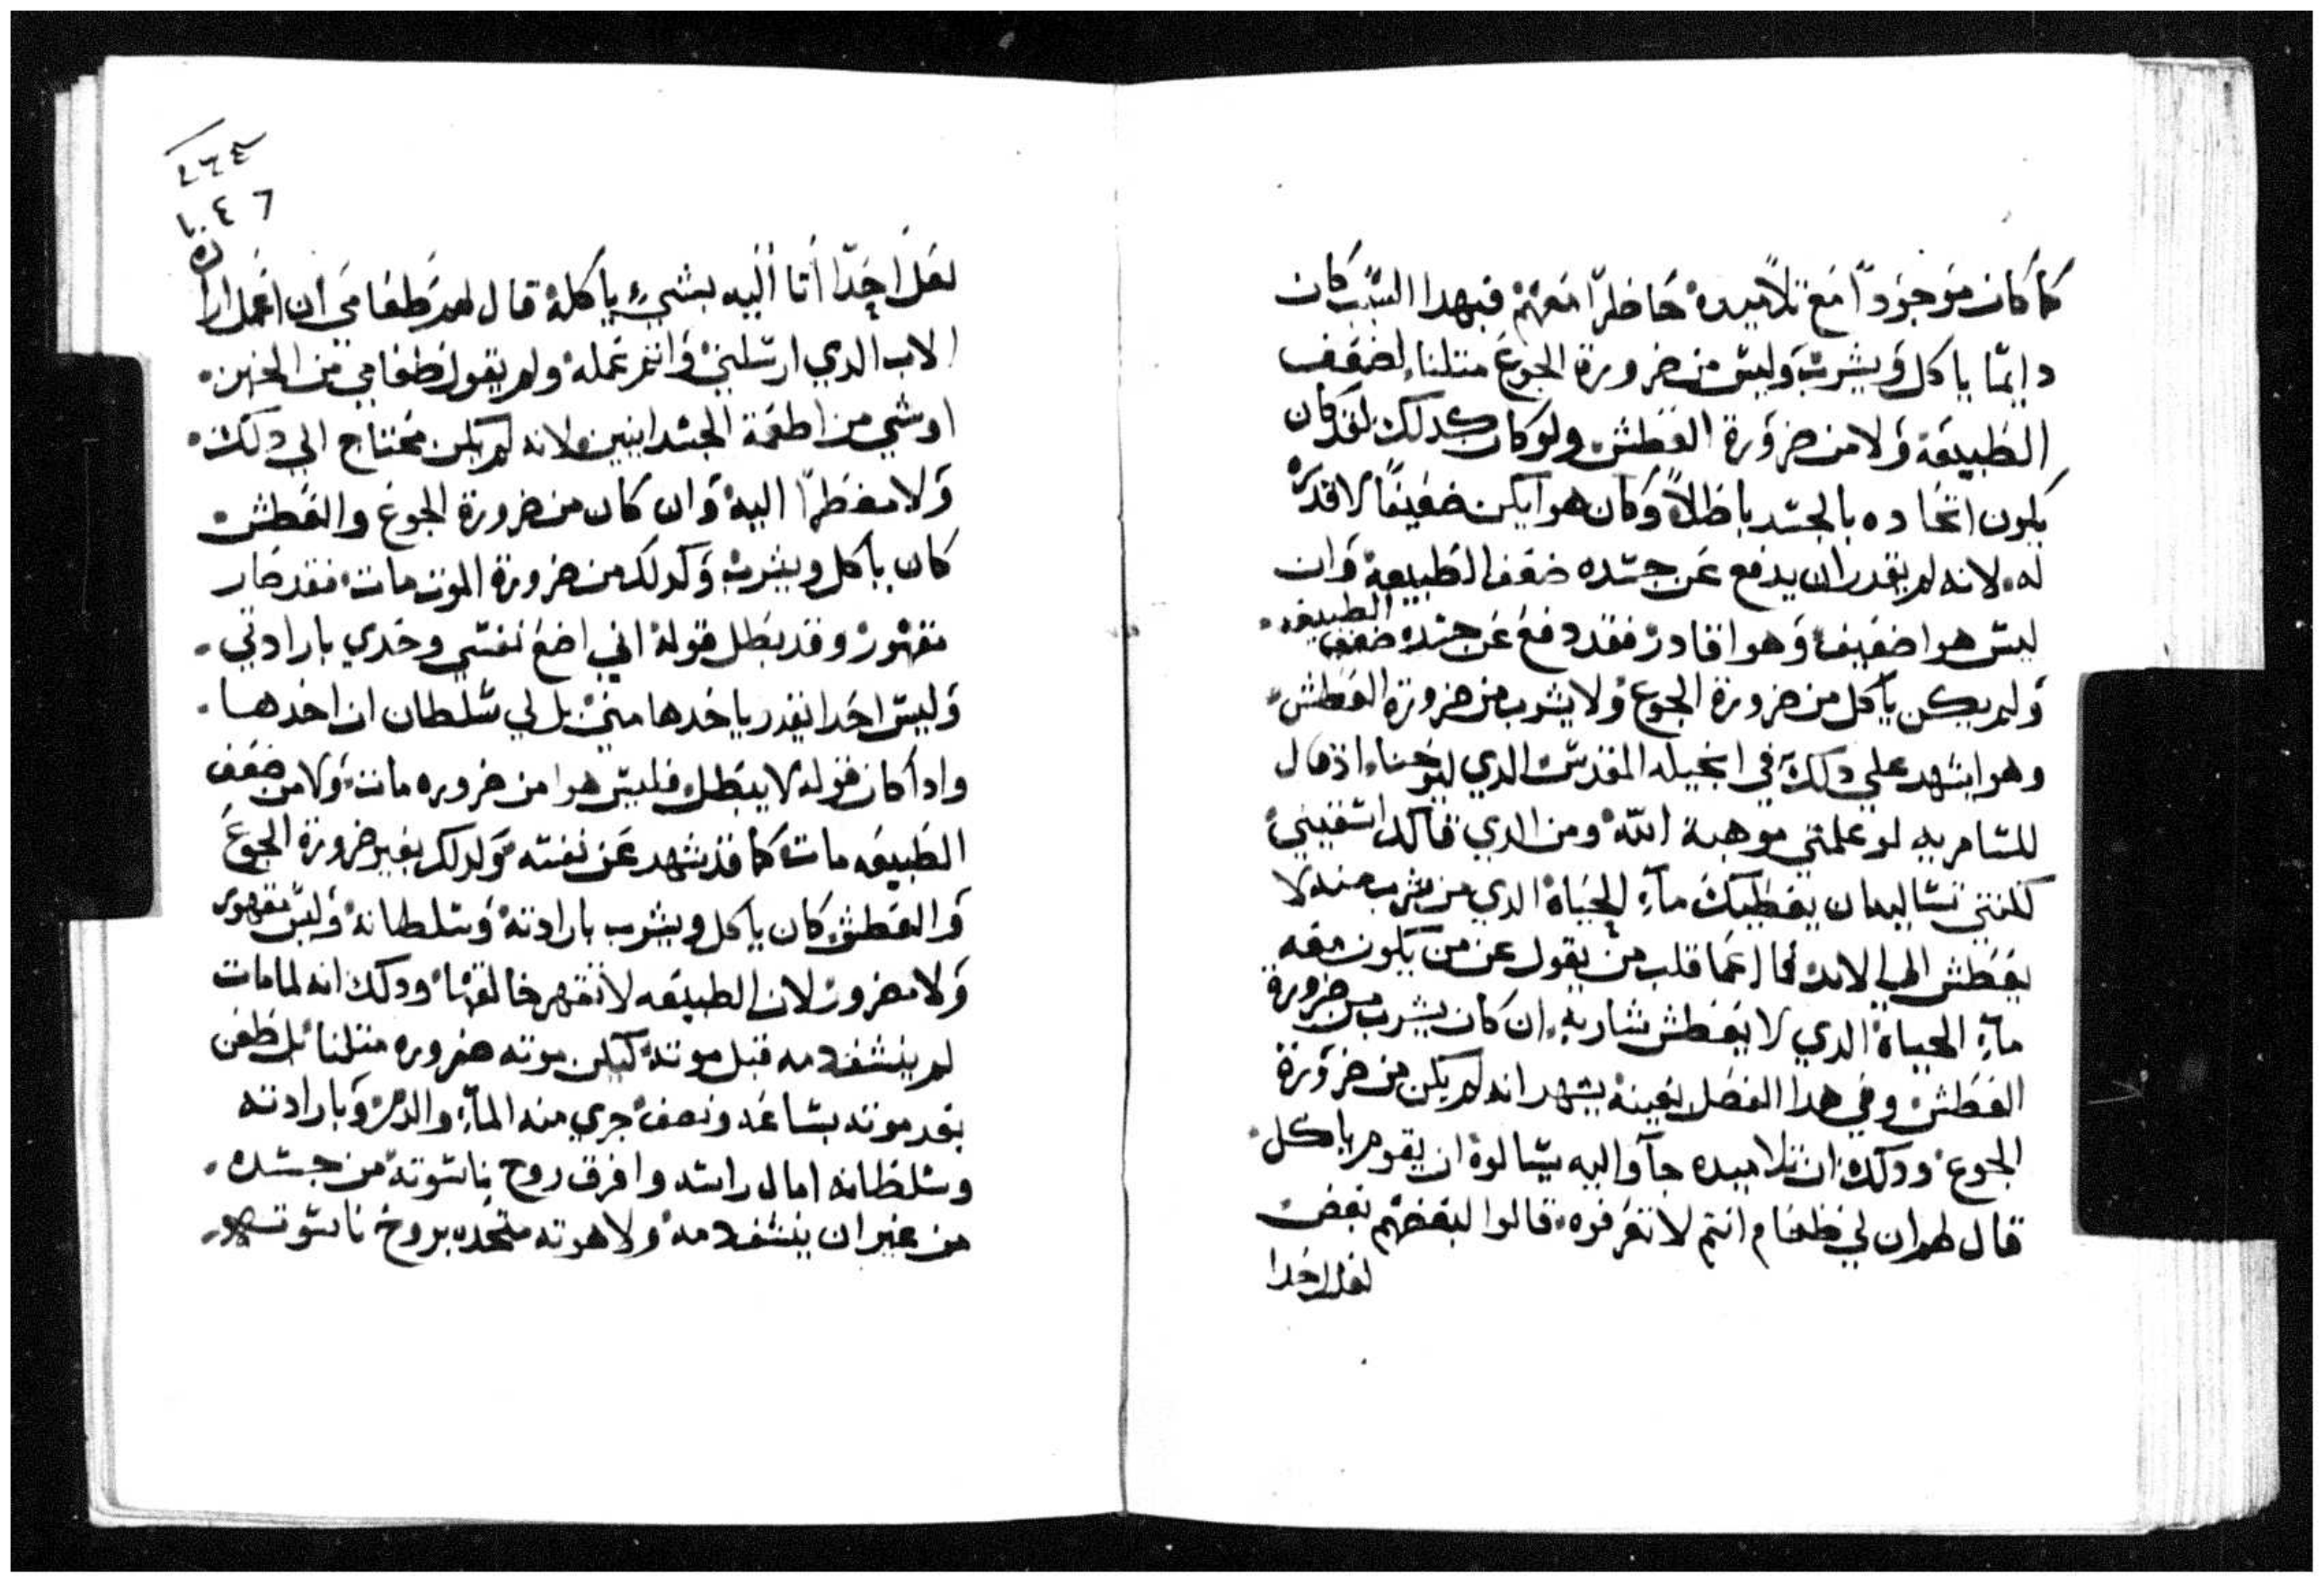 كما كان موجودًا مع تلاميده حاظرًا معهم فبهدا السبب كان
دايمًا ياكل ويشرب وليس من ضرورة الجوع متلنا لضعف
الطبيعة ولا من ضرورة العطش ولو كان كدلك لقد كان
يكون اتحاده بالجسد باطلًا وكان هوا يكن ضعيفًا لا قدره
له لانه لم يقدر ان يدفع عن جسده ضعف الطبيعة وان
ليس هوا ضعيف وهوا قادر فقد دفع عن جسده ضعف الطبيعه
ولم يكن ياكل من ضرورة الجوع ولا يشرب من ضرورة العطش
وهوا يشهد علي دلك في انجيله المقدس الدي ليوحنا اذ قال
للسامريه لو علمتي موهبة الله ومن الدي قالك اسقيني
لكنتي تساليه ان يعطيك مآء الحياة الدي من يشرب منه لا
يعطش الي الابد فما اعما قلب من يقول عن من يكون معه
مآء الحياة الدي لا يعطش شاربه ان كان يشرب من ضرورة
العطش وفي هدا الفصل بعينه يشهد انه لم يكن من ضرورة
الجوع ودلك ان تلاميده جآوا اليه يسالوه ان يقوم ياكل
قال لهم ان لي طعام انتم لا تعرفوه قالوا لبعضهم بعض
لعل احدا
٤٦٤
لعل احدًا اتا اليه بشيء ياكله قال لهم طعامي ان اعمل اراده
الاب الدي ارسلني واتمم عمله ولم يقول طعامي من الخبز
او شي من اطعمة الجسدانيين لانه لم يكن محتاج الي دلك
ولا مضطرًا اليه وان كان من ضرورة الجوع والعطش
كان ياكل ويشرب وكدلك من ضرورة الموت مات فقد صار
مقهور وقد بطل قوله اني اضع نفسي وحدي بارادتي
وليس احدا يقدر ياخدها مني بل لي سلطان ان اخدها
وادا كان قوله لا يبطل فليس هوا من ضروره مات ولا من ضعف
الطبيعه مات كما قد شهد عن نفسه وكدلك بغير ضرورة الجوع
والعطش كان ياكل ويشرب بارادته وسلطانه وليس مقهور
ولا مضرور لان الطبيعه لا تقهر خالقها ودلك انه لما مات
لم ينشف دمه قبل موته كيكن موته ضروره متلنا بل طعن
بعد موته بساعه ونصف جري منه المآء والدم وبارادته
وسلطانه امال راسه وافرق روح ناسوته من جسده
من غير ان ينشف دمه ولاهوته متحده بروح ناسوته